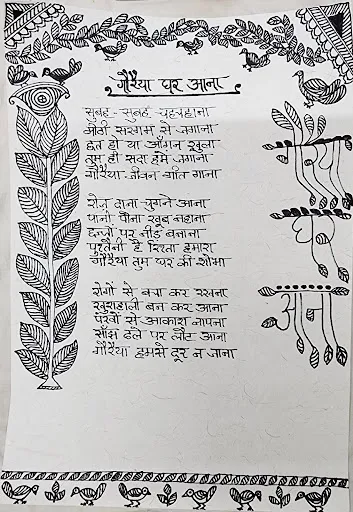 गौरैया घर आना
सुबह-सुबह चहचहाना
मीठी सरगम से जगाना
छत हो या आँगन खुला
तुम ही सदा हमे जगाना
गौरैया जीवन गीत गाना
रोज़ दाना चुगने आना
पानी पीना खूब नहाना
छज्जों पर नीड़ बनाना
पुश्तैनी है रिश्ता हमारा
गौरैया तुम घर की शोभा
रोगों से बचा कर रखना
खुशहाली बन कर आना
पंखों से आकाश नापना
साँझ ढले घर लौट आना
गौरैया हमसे दूर न जाना